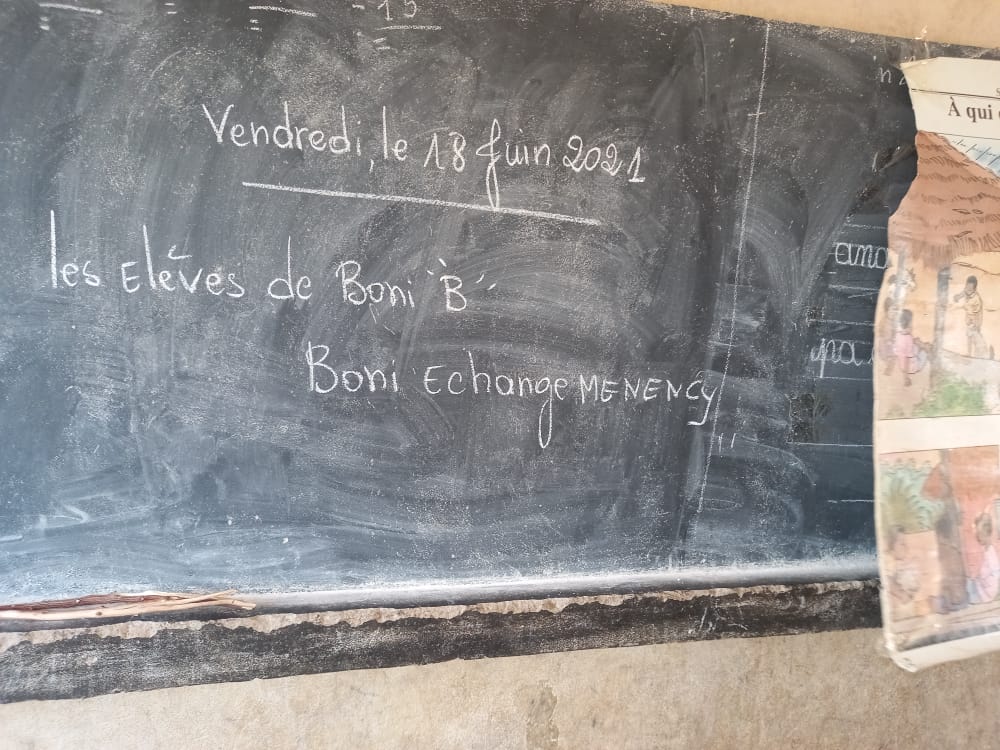 15
Vendredi, le 18 Juin 2021
les Elèves de Boni "B"
Boni Echange MENENCY
À qui